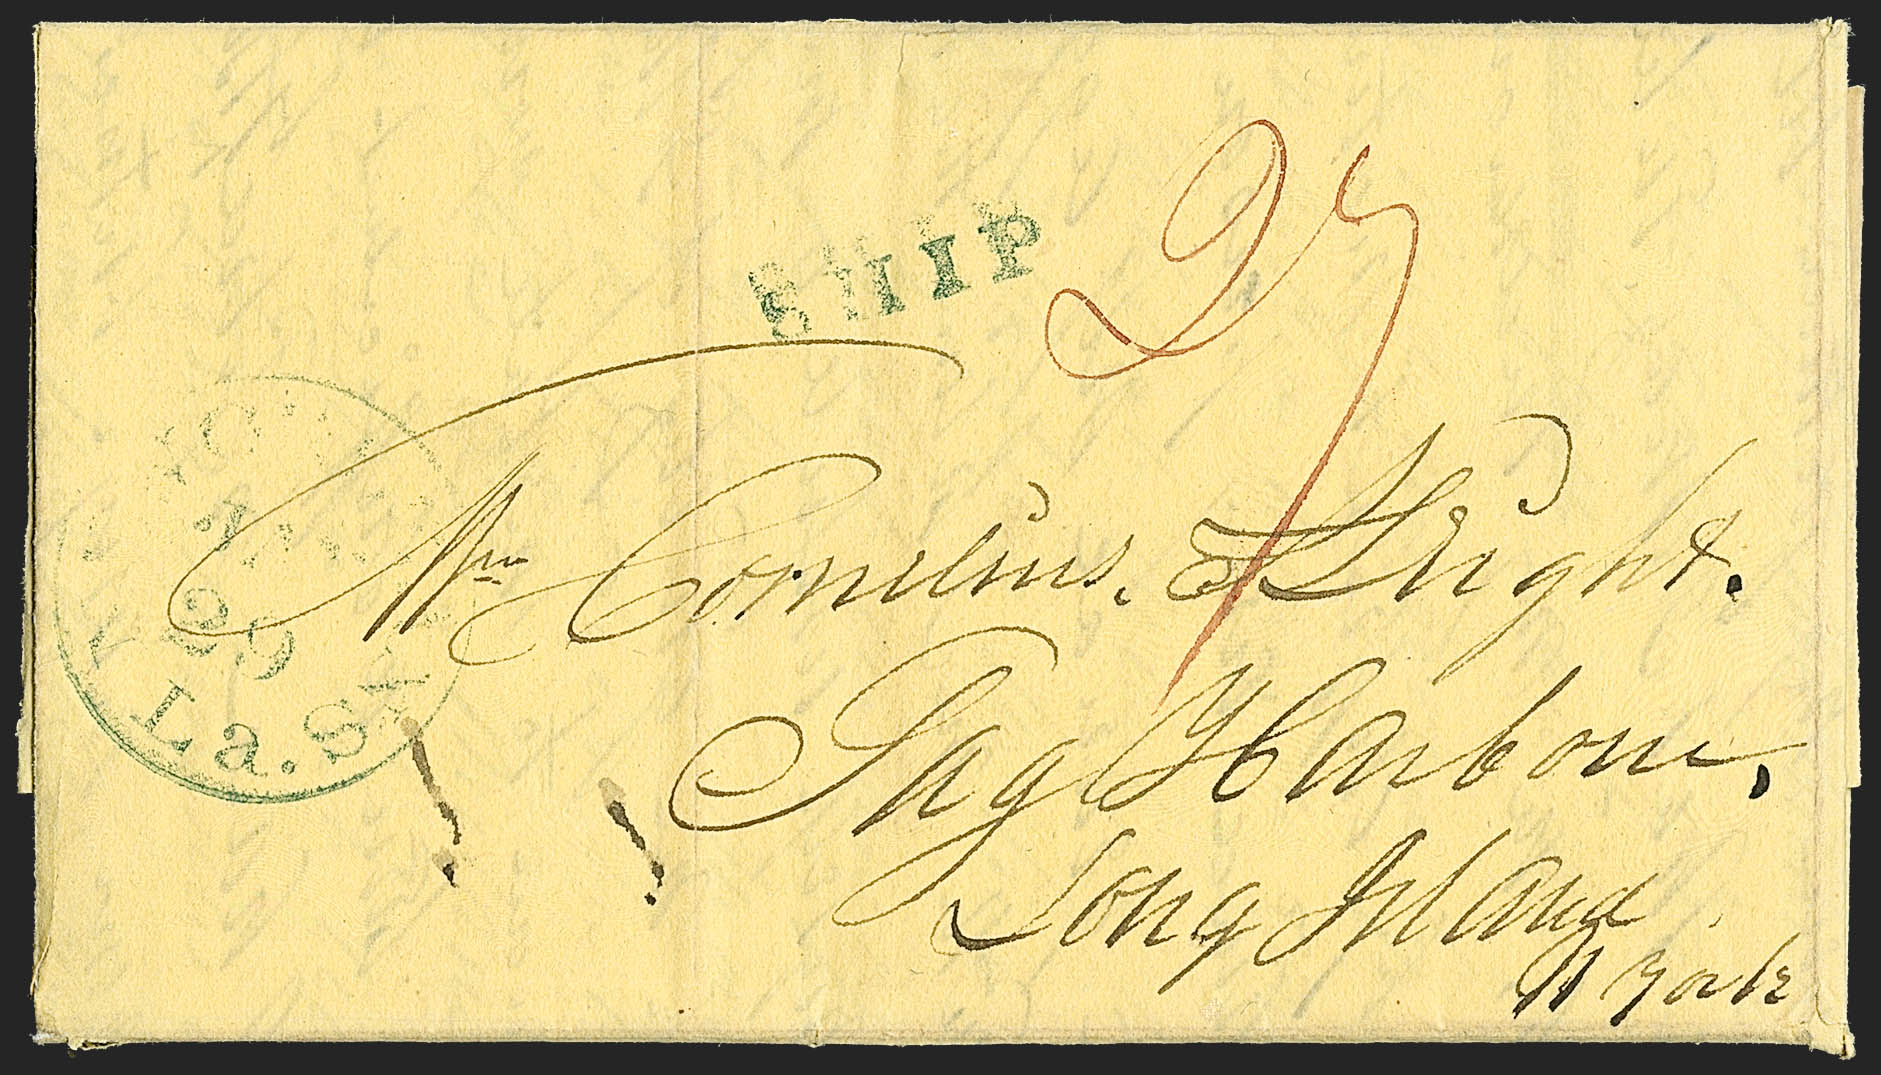 SHIP
27
Mr Cornelius. Sleight.
Sag Harbour,
Long Island
N York
29
La.